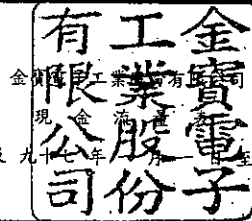 金寶電子
工業股份
有限公司
金寶電子工業股份有限公司
現金流量
九十七年 月一日至